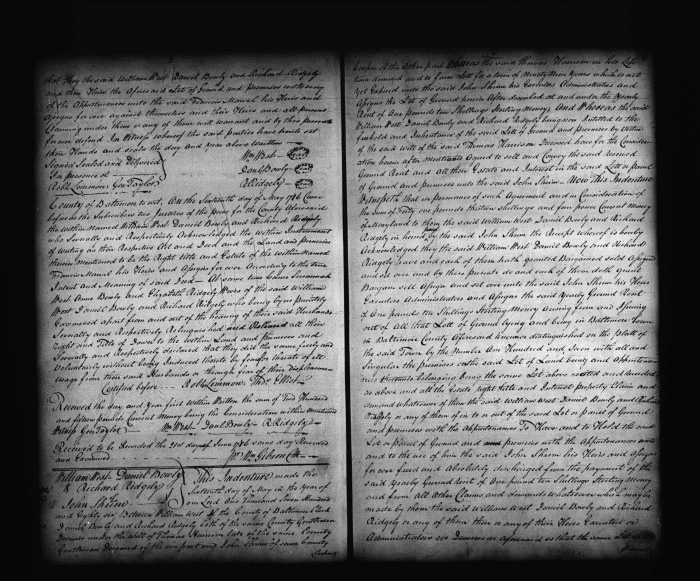 that they the said William West Daniel Bowly and Richard Ridgely
and their Heirs the Aforesaid Lot of Ground and premises with every
of the Appurtenances unto the said Francis Mowel his Heirs and
Assigns for ever against themselves and their Heirs and all persons
Claiming under them or any of them will warrant and by these presents
for ever defend In Witness whereof the said parties have hereto set
their Hands and Seals the day and Year above Written
Signed Sealed and Delivered Wm West Seal
In presence of Danl Bowly Seal
Robt Lemmon Geo Taylor R Ridgely Seal
County of Baltimore to wit, On the Sixteenth day of May 1786 Came
before the Subscribers two Justices of the Peace for the County Aforesaid
the within Named William West Daniel Bowly and Richard Ridgely
who Severally and Respectively Acknowledged the Within Instrument
of writing as their Respective Act and Deed and the Land and premises
therein Mentioned to be the Right title and Estate of the within Named
Francis Mowel his Heirs and Assigns for ever According to the true
Intent and Meaning of said Deed At same time Came Susannah
West Anne Bowly and Elizabeth Ridgely Wives of the said William
West Daniel Bowly and Richard Ridgely who being by us privately
Examined apart from and out of the hearing of their said Husbands
Severally and Respectively Relinquished and Released all their
Right and Title of Dower to the Within Land and premises and
Severally and Respectively declared that they did the same freely and
Voluntarily without being Induced thereto by fear or threats of ill
Usage from their said Husbands or through fear of their displeasure
Certified before Robt Lemmon Thos Elliot
Received the day and Year first within Written the sum of Two Hundred
and fifteen pounds Current Money being the Consideration within Mentioned
Witness Geo Taylor Wm West Danl Bowly R. Ridgely
Received to be Recorded the 21st day of June 1786 same day Recorded
and Examined Wm Gibson Clk
William West Daniel Bowly
& Richard Ridgely
To
John Shrim
This Indenture made the
Sixteenth day of May in the Year of
our Lord One Thousand Seven Hundred
and Eighty six Between William West of the County of Baltimore Clerk
Daniel Bowly and Richard Ridgely both of the same County Gentlemen
Devisees under the will of Thomas Harrison late of the same County
Gentleman Deceased of the one part and John Shrim of same County
Cooper
Cooper of the other part Whereas the said Thomas Harrison in his Life
time demised and to farm Lett for a term of Ninety Nine Years which is not
Yet Expired unto the said John Shrim his Executors Administrators and
Assigns the Lot of Ground herein After described at and under the Yearly
Rent of One pounds ten Shillings Sterling Money And Whereas the said
William West Daniel Bowly and Richard Ridgely being now Intitled to the
and Inheritance of the said Lott of Ground and premises by Virtue
of the said will of the said Thomas Harrison Deceased have for the Consider
ation herein after mentioned Agreed to sell and Convey the said reserved
Ground Rent and All their Estate and Interest in the said Lott or parcel
of Ground and premises unto the said John Shrim Now This Indenture
Witnesseth that in pursuance of such Agreement and in Consideration of
the Sum of Forty one pounds thirteen shillings and four pence Current Money
of Maryland to them the said William West Daniel Bowly and Richard
Ridgely in hand by the said John Shrim the Receipt whereof is hereby
Acknowledged they the said William West Daniel Bowly and Richard
Ridgely have and each of them hath granted Bargained sold Assigned
and set over and by these presents do and each of them doth grant
Bargain sell Assign and set over unto the said John Shrim his Heirs
Executors Administrators and Assigns the said Yearly Ground Rent
of One pounds ten Shillings Sterling Money Arising from and Issuing
out of All that Lot of Ground lying and being in Baltimore Town
in Baltimore County Aforesaid known and distinguished on the platt of
the said Town by the Number One Hundred and Seven with all and
Singular the premises on the said Lot of Land being and Appurtenan
ces thereunto belonging And the same Lot above recited and
as above and all the Estate right title and Interest property Claim and
demand whatsoever of them the said William West Daniel Bowly and Richard
Ridgely or any of them in or to or out of the said Lot or parcel of Ground
and premises with the Appurtenances To Have and to Hold the said
Lot or parcel of Ground and premises with the Appurtenances unto
and to the use of him the said John Shrim his Heirs and Assigns
for ever freed and Absolutely discharged from the payment of the
said Yearly Ground Rent of One pound ten Shillings Sterling Money
and from All other Claims and demands whatsoever which may be
made by them the said William West Daniel Bowly and Richard
Ridgely or any of them their or any of their Heirs Executors or
Administrators as Devisees as Aforesaid so that the same Lot of